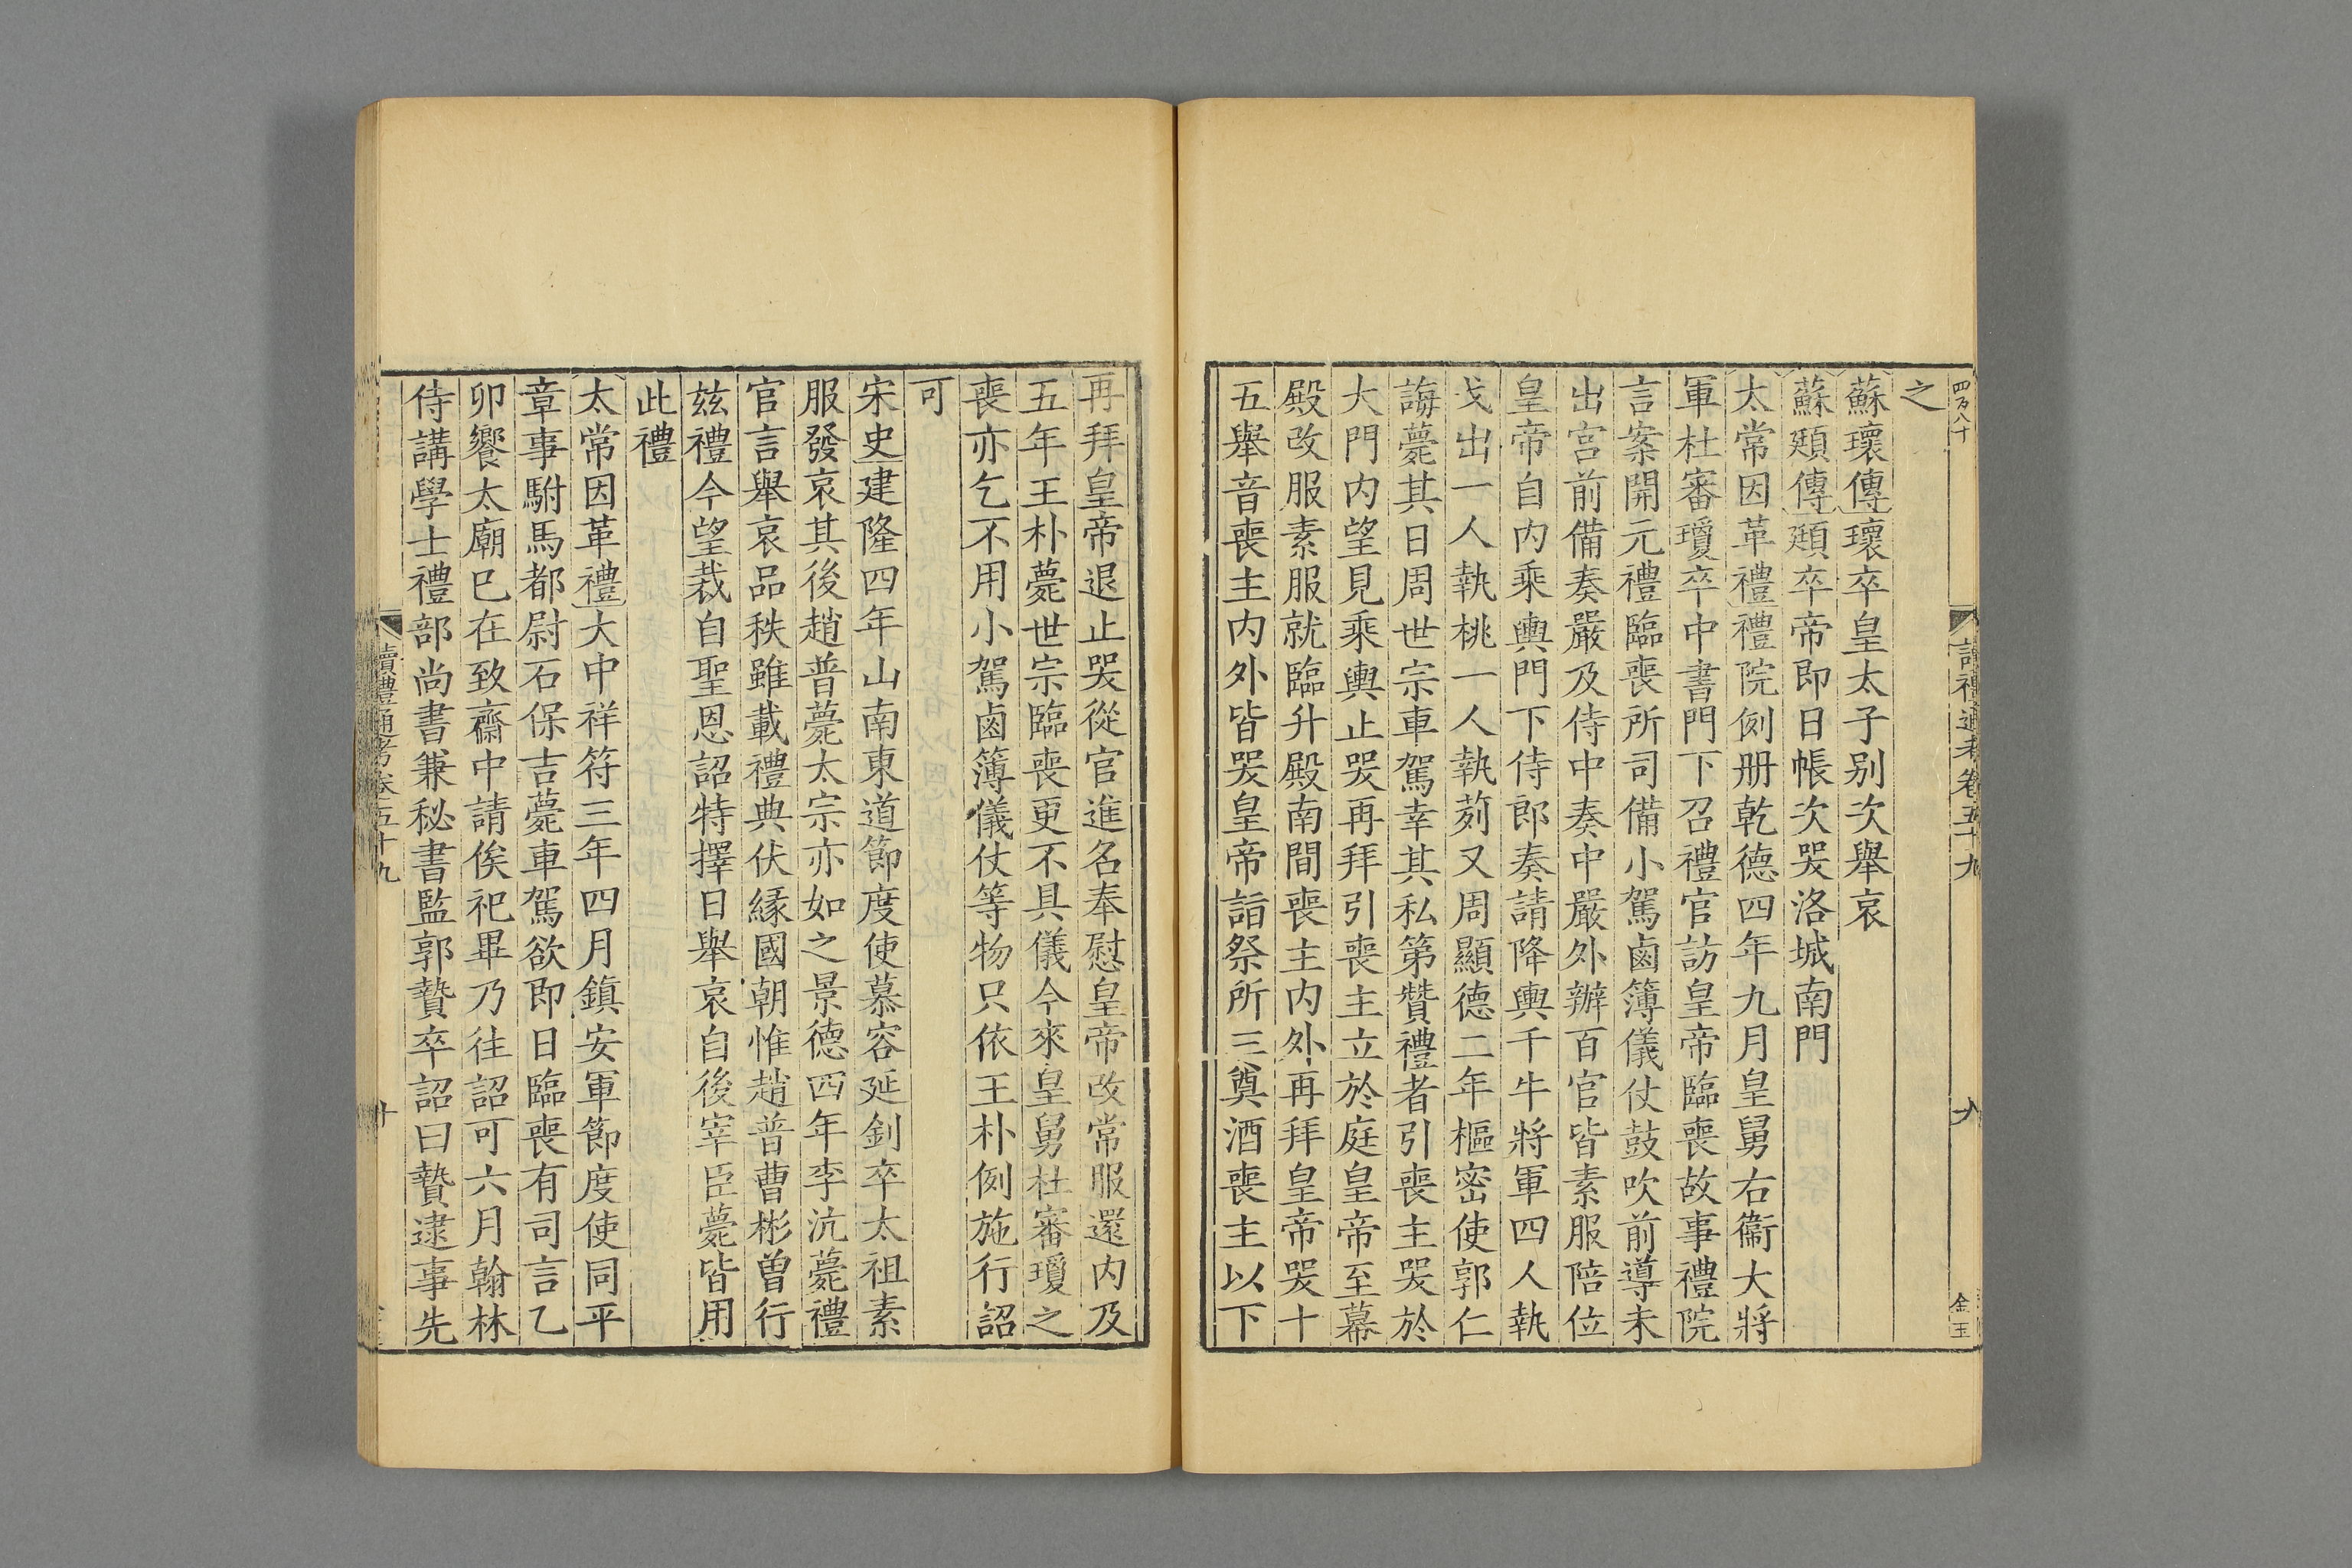 之
蘇瓌傳瓌卒皇太子别次舉哀
蘇頲傳頲卒帝即日帳次哭洛城南門
太常因革禮禮院例册乾德四年九月皇舅右衞大將
軍杜審瓊卒中書門下召禮官訪皇帝臨喪故事禮院
言案開元禮臨喪所司備小駕鹵簿儀仗鼓吹前導未
出宫前備奏嚴及侍中奏中嚴外辦百官皆素服陪位
皇帝自内乘輿門下侍郎奏請降輿千牛將軍四人執
戈出一人執桃一人執茢又周顯德二年樞密使郭仁
誨薨其日周世宗車駕幸其私第贊禮者引喪主哭於
大門内望見乘輿止哭再拜引喪主立於庭皇帝至幕
殿改服素服就臨升殿南間喪主内外再拜皇帝哭十
五舉音喪主内外皆哭皇帝詣祭所三奠酒喪主以下
讀禮通考卷五十九
九
再拜皇帝退止哭從官進名奉慰皇帝改常服還内及
五年王朴薨世宗臨喪更不具儀今來皇舅杜審瓊之
喪亦乞不用小駕鹵簿儀仗等物只依王朴例施行詔
可
宋史建隆四年山南東道節度使慕容延釗卒太祖素
服發哀其後趙普薨太宗亦如之景德四年李沆薨禮
官言舉哀品秩雖載禮典伏緣國朝惟趙普曹彬曾行
兹禮今望裁自聖恩詔特擇日舉哀自後宰臣薨皆用
此禮
太常因革禮大中祥符三年四月鎮安軍節度使同平
章事駙馬都尉石保吉薨車駕欲即日臨喪有司言乙
卯饗太廟已在致齋中請俟祀畢乃往詔可六月翰林
侍講學士禮部尚書兼秘書監郭贄卒詔曰贄逮事先
讀禮通考卷五十九
十